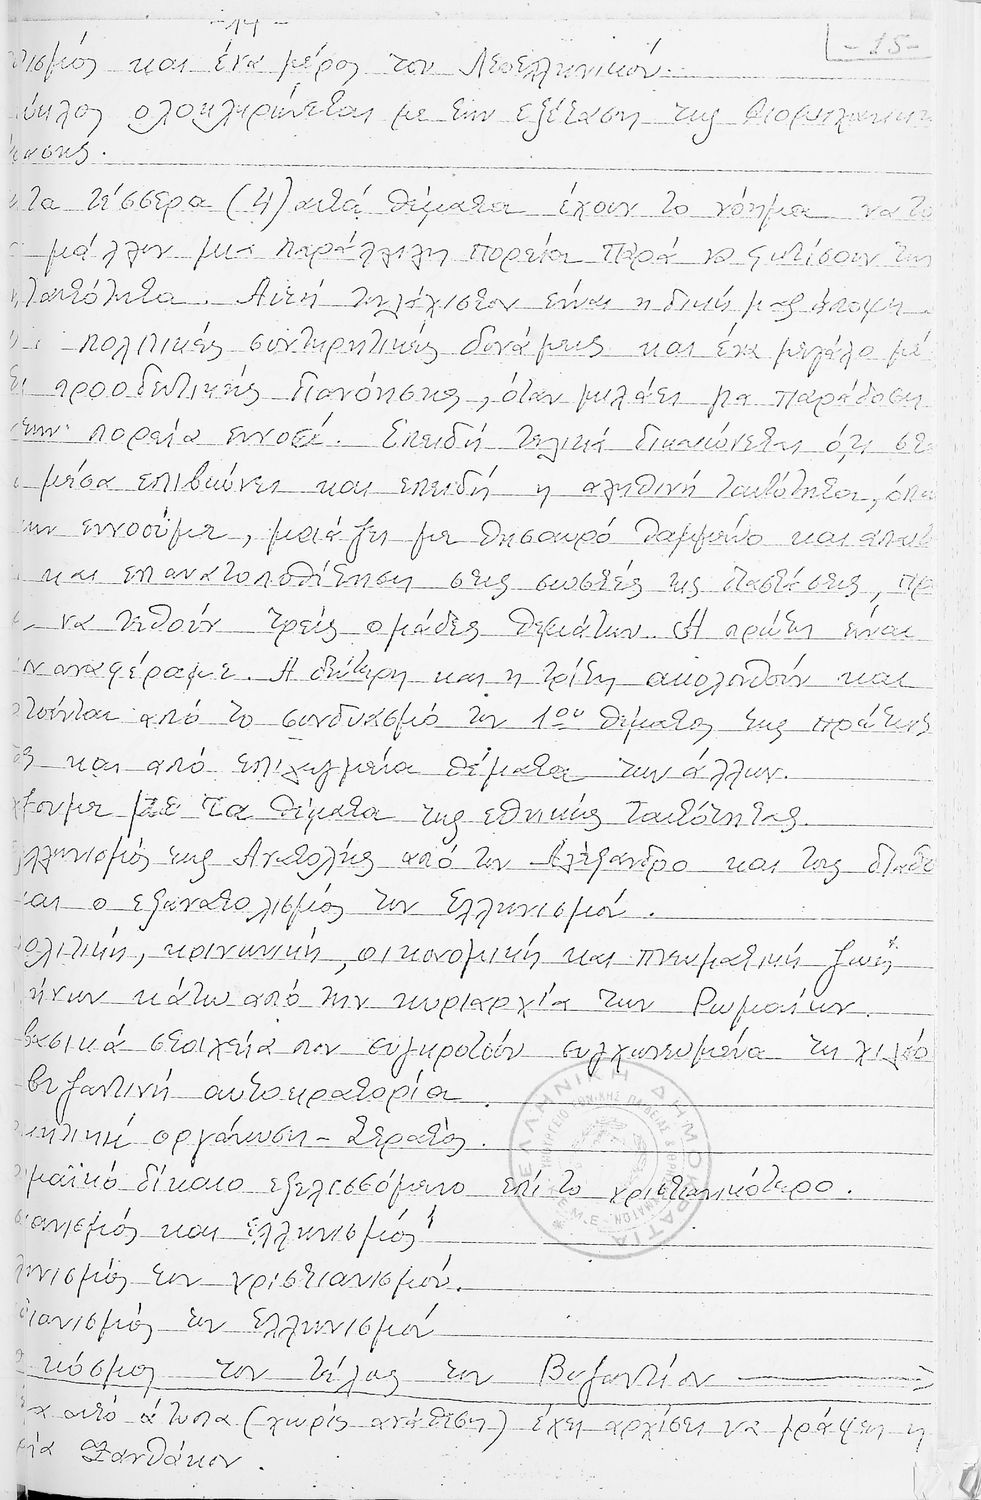 -14-
-15-
τισμός και ένα μέρος του Νεοελληνικού.
ύκλος ολοκληρώνεται με την εξέταση της
ασης.
τα τέσσερα (4) αυτά θέματα έχουν το νόημα να το
μάλλον μια παράλληλη πορεία παρά να φωτίσουν την
ταυτότητα. Αυτή τουλάχιστον είναι η δική μας άποψη.
πολιτικές συντηρητικές δυνάμεις και ένα μεγάλο μέ
προοδευτικής διανόησης, όταν μιλάει για παράδοση
πορεία εννοεί. Επειδή τελικά δικαιώνεται ό,τι στο
μέσα επιβιώνει και επειδή η αληθινή ταυτότητα, όπω
την εννοούμε, μοιάζει με θησαυρό θαμμένο και απαιτ
και επανατοποθέτηση στις σωστές της διαστάσεις, πρ
να τεθούν τρεις ομάδες θεμάτων. Η πρώτη είναι
αναφέραμε. Η δεύτερη και η τρίτη ακολουθούν και
τούνται από το συνδυασμό του 1ου θέματος της πρώτης
ας και από επιλεγμένα θέματα των άλλων.
ζουμε με τα θέματα της εθνικής ταυτότητας.
λληνισμός της Ανατολής από τον Αλέξανδρο και τους διαδό
και ο εξανατολισμός του Ελληνισμού.
ολιτική, κοινωνική, οικονομική και πνευματική ζωή
ήνων κάτω από την κυριαρχία των Ρωμαίων.
βασικά στοιχεία που συγκροτούν συγχωνευμένα τη χιλιό
βυζαντινή αυτοκρατορία.
οργάνωση - Στρατός.
μαϊκό δίκαιο εξελισσόμενο επί το χριστιανικότερο.
ιανισμός και Ελληνισμός
ληνισμός του χριστιανισμού.
τιανισμός του Ελληνισμού
κόσμος του τέλος του Βυζαντίου
ια αυτό άτυπα (χωρίς ανάθεση) έχει αρχίσει να γράφει η
ρία Ξανθάκου.
ΕΛΛΗΝΙΚΗ ΔΗΜΟΚΡΑΤΙΑ
ΥΠΟΥΡΓΕΙΟ ΕΘΝΙΚΗΣ ΠΑΙΔΕΙΑΣ & ΘΡΗΣΚΕΥΜΑΤΩΝ